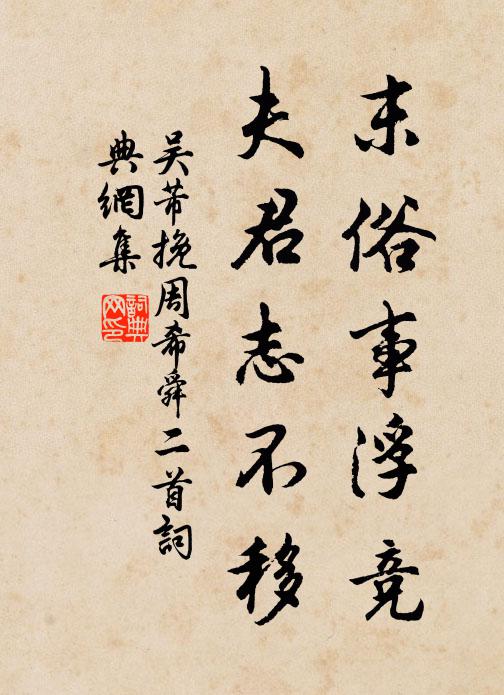 末俗事浮竞
夫君志不移
吴芾挽周希舜二首詞
典網集
詞典网印